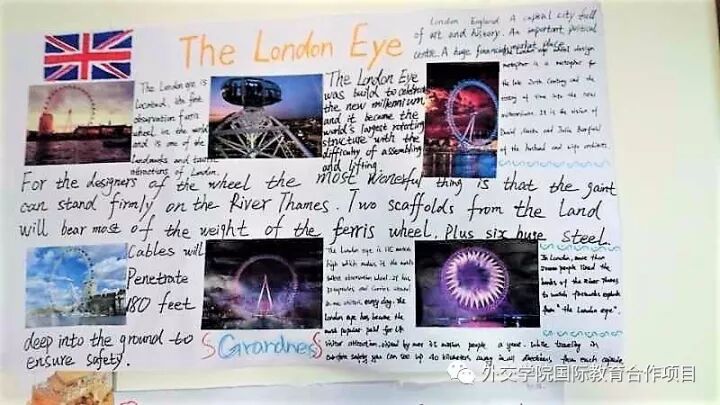 The London Eye
London England A capital city full
of art and history. An important political
centre. A huge financial market place
The London eye is
located, its first
observation ferris
wheel in the world
and is one of the
landmarks and tourist
attractions of London.
The London Eye
was build to celebrate
the new millennium,
and it became the
world's largest rotating
structure with the
difficulty of assembling
and lifting.
design
metaphor is a metaphor for
the late 20th Century and the
of time into the new
It is the vision of
David Marks and Julia Barfield
of the husband and wife architects.
For the designers of the wheel the most wonerful thing is that the gaint
can stand firmly on the River Thames. Two scaffolds from the Land
will bear most of the weight of the ferris wheel. Plus six huge steel
Cables will
Penetrate
180 feet
deep into the ground to
ensure safety.
The London eye is
high which makes it the world's
observation wheel. It has
capsules and carries
every day. The
London eye has become the
most popular paid for UK
visitor attraction, visited by over 3.5 million people a year. While traveling in
safety you can see up 40 kilometers away in all directions from each capsule
In London, more than
people lined the
banks of the River Thames
to watch fireworks explode
from "the London eye".
SGrandnersS
外交学院国际教育合作项目